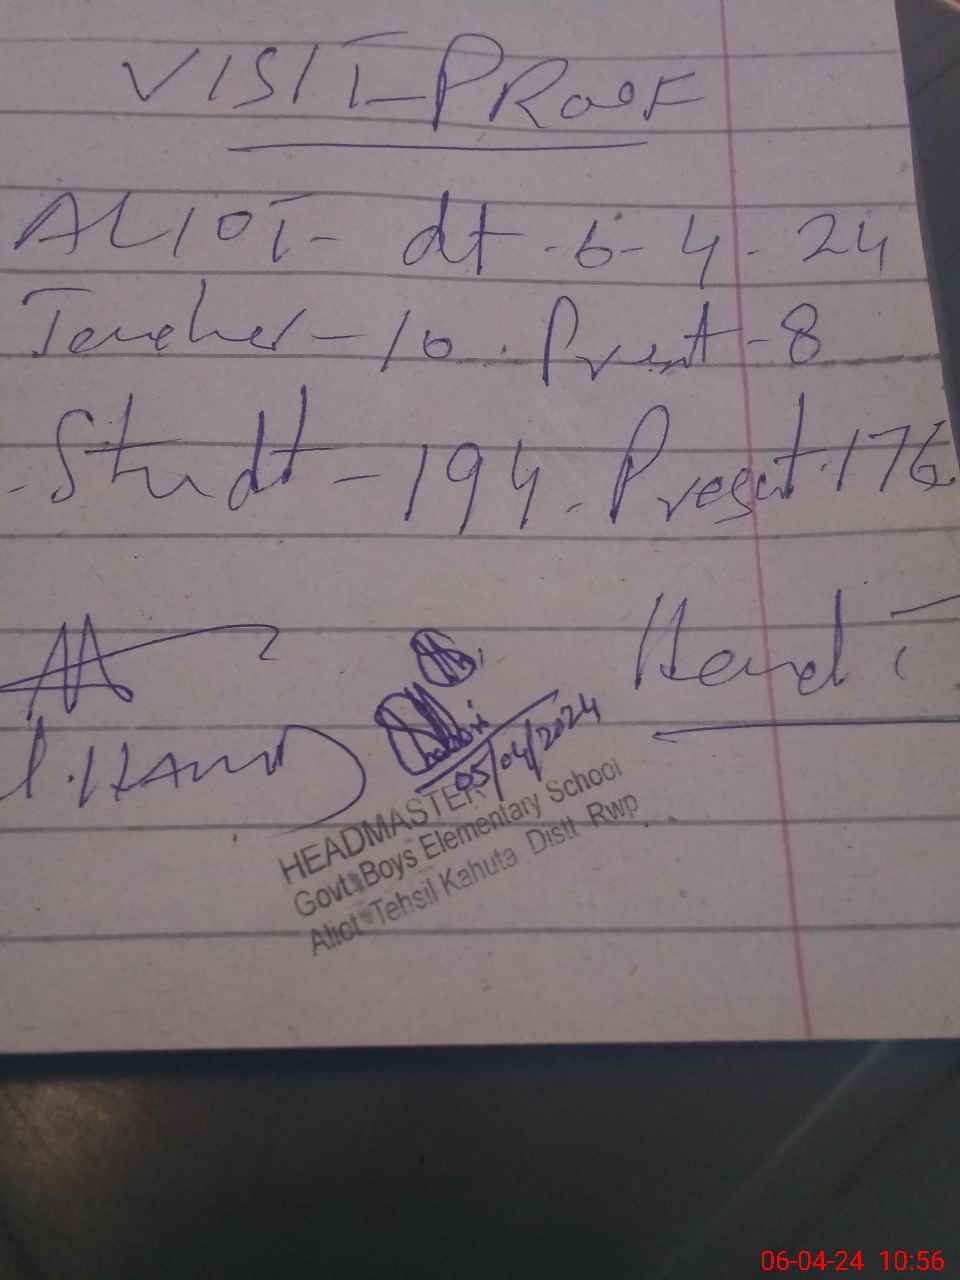 VISIT PROOF
ALIOT - dt - 6 - 4 - 24
Teacher - 10 . Present - 8
- Studt - 194 - Present . 176
05/04/2024
HEADMASTER
Govt. Boys Elementary School
Aliot Tehsil Kahuta Distt Rwp
06-04-24 10:56